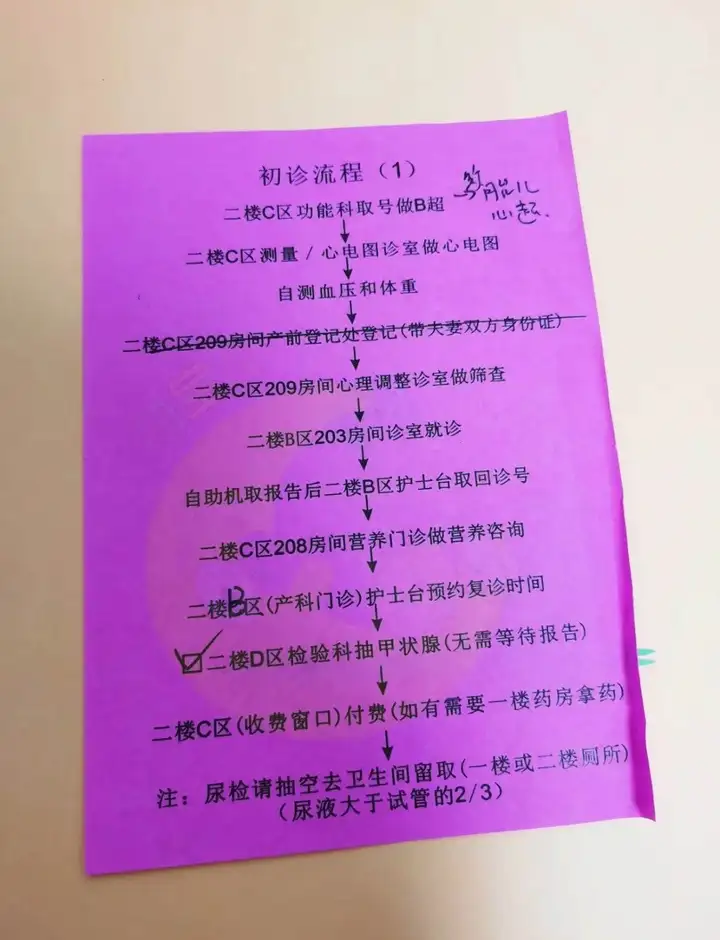 初诊流程（1）
二楼C区功能科取号做B超
胎儿
心超
二楼C区测量 / 心电图诊室做心电图
自测血压和体重
二楼C区209房间产前登记处登记(带夫妻双方身份证)
二楼C区209房间心理调整诊室做筛查
二楼B区203房间诊室就诊
自助机取报告后二楼B区护士台取回诊号
二楼C区208房间营养门诊做营养咨询
二楼B区(产科门诊)护士台预约复诊时间
二楼D区检验科抽甲状腺(无需等待报告)
二楼C区(收费窗口)付费(如有需要一楼药房拿药)
注：尿检请抽空去卫生间留取(一楼或二楼厕所)
（尿液大于试管的2/3）